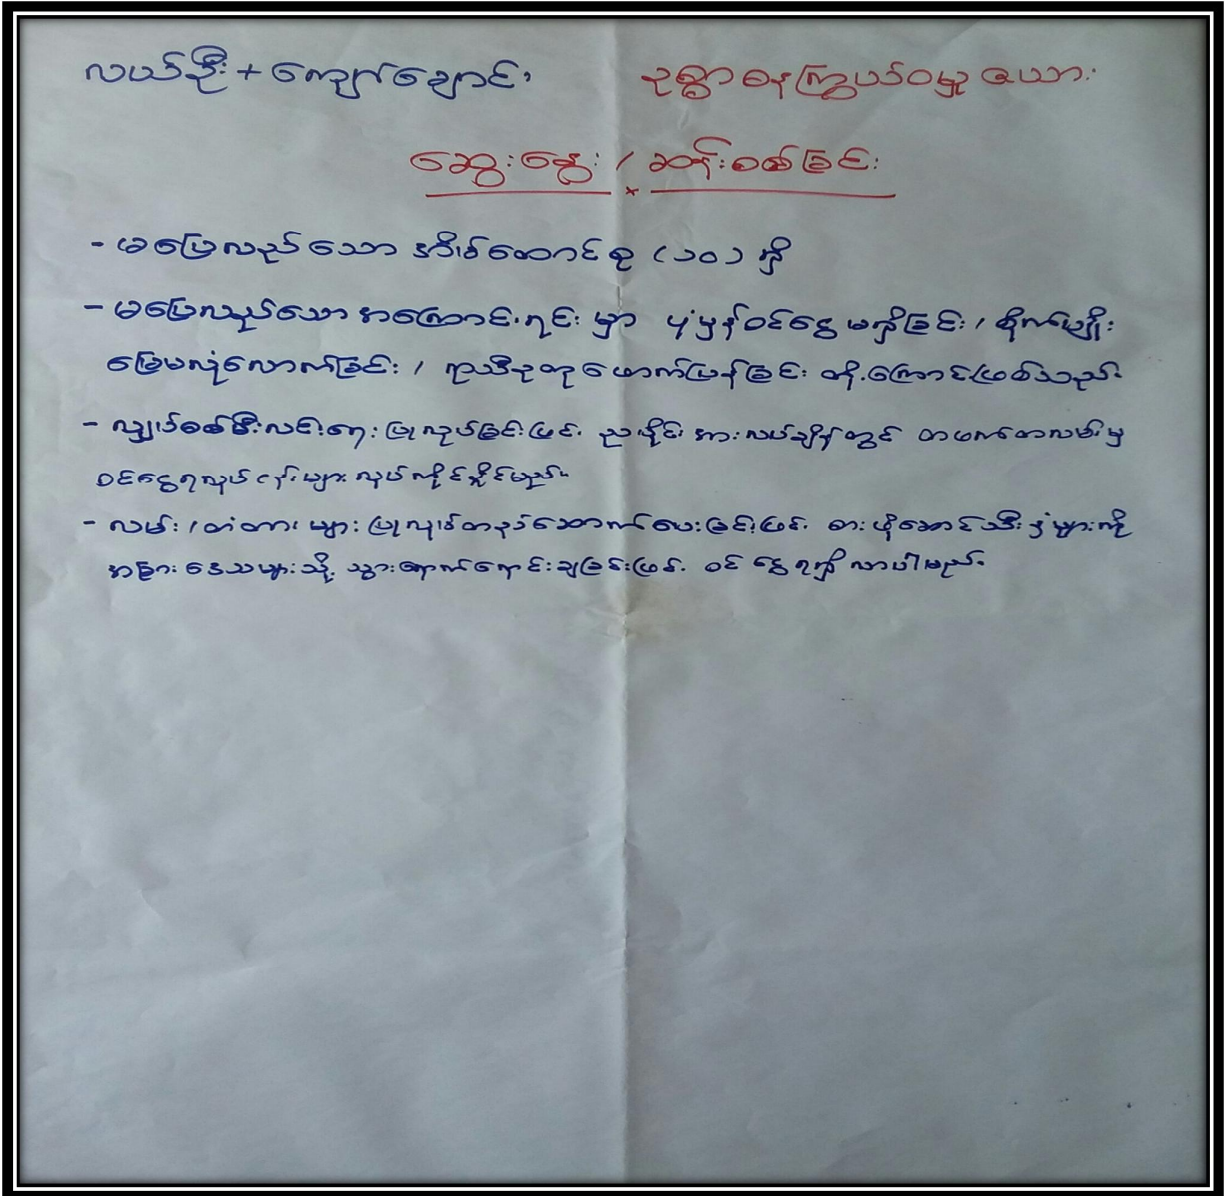 လယ်ဦး + ကျောက်ချောင်း ဥစ္စာဓနကြွယ်ဝမှုဇယား
ဆွေးနွေး / ဆန်းစစ်ခြင်း
- မပြေလည်သော အိမ်ထောင်စု (၁၀) ရှိ
- မပြေလည်သော အကြောင်းရင်းမှာ ပုံမှန်ဝင်ငွေမရှိခြင်း / စိုက်ပျိုး
မြေမလုံလောက်ခြင်း / ရာသီဥတုဖောက်ပြန်ခြင်း တို့ကြောင့်ဖြစ်သည်။
- လျှပ်စစ်မီးလင်းရေး ပြုလုပ်ခြင်းဖြင့် ညပိုင်း အားလပ်ချိန်တွင် တဖက်တလမ်းမှ
ဝင်ငွေရလုပ်ငန်းများ လုပ်ကိုင်နိုင်မည်။
- လမ်း / တံတား များ ပြုလုပ်တည်ဆောက်ပေးခြင်းဖြင့် စားဖိုဆောင်သီးနှံများကို
အခြားဒေသများသို့ သွားရောက်ရောင်းချခြင်းဖြင့် ဝင်ငွေရရှိလာပါမည်။